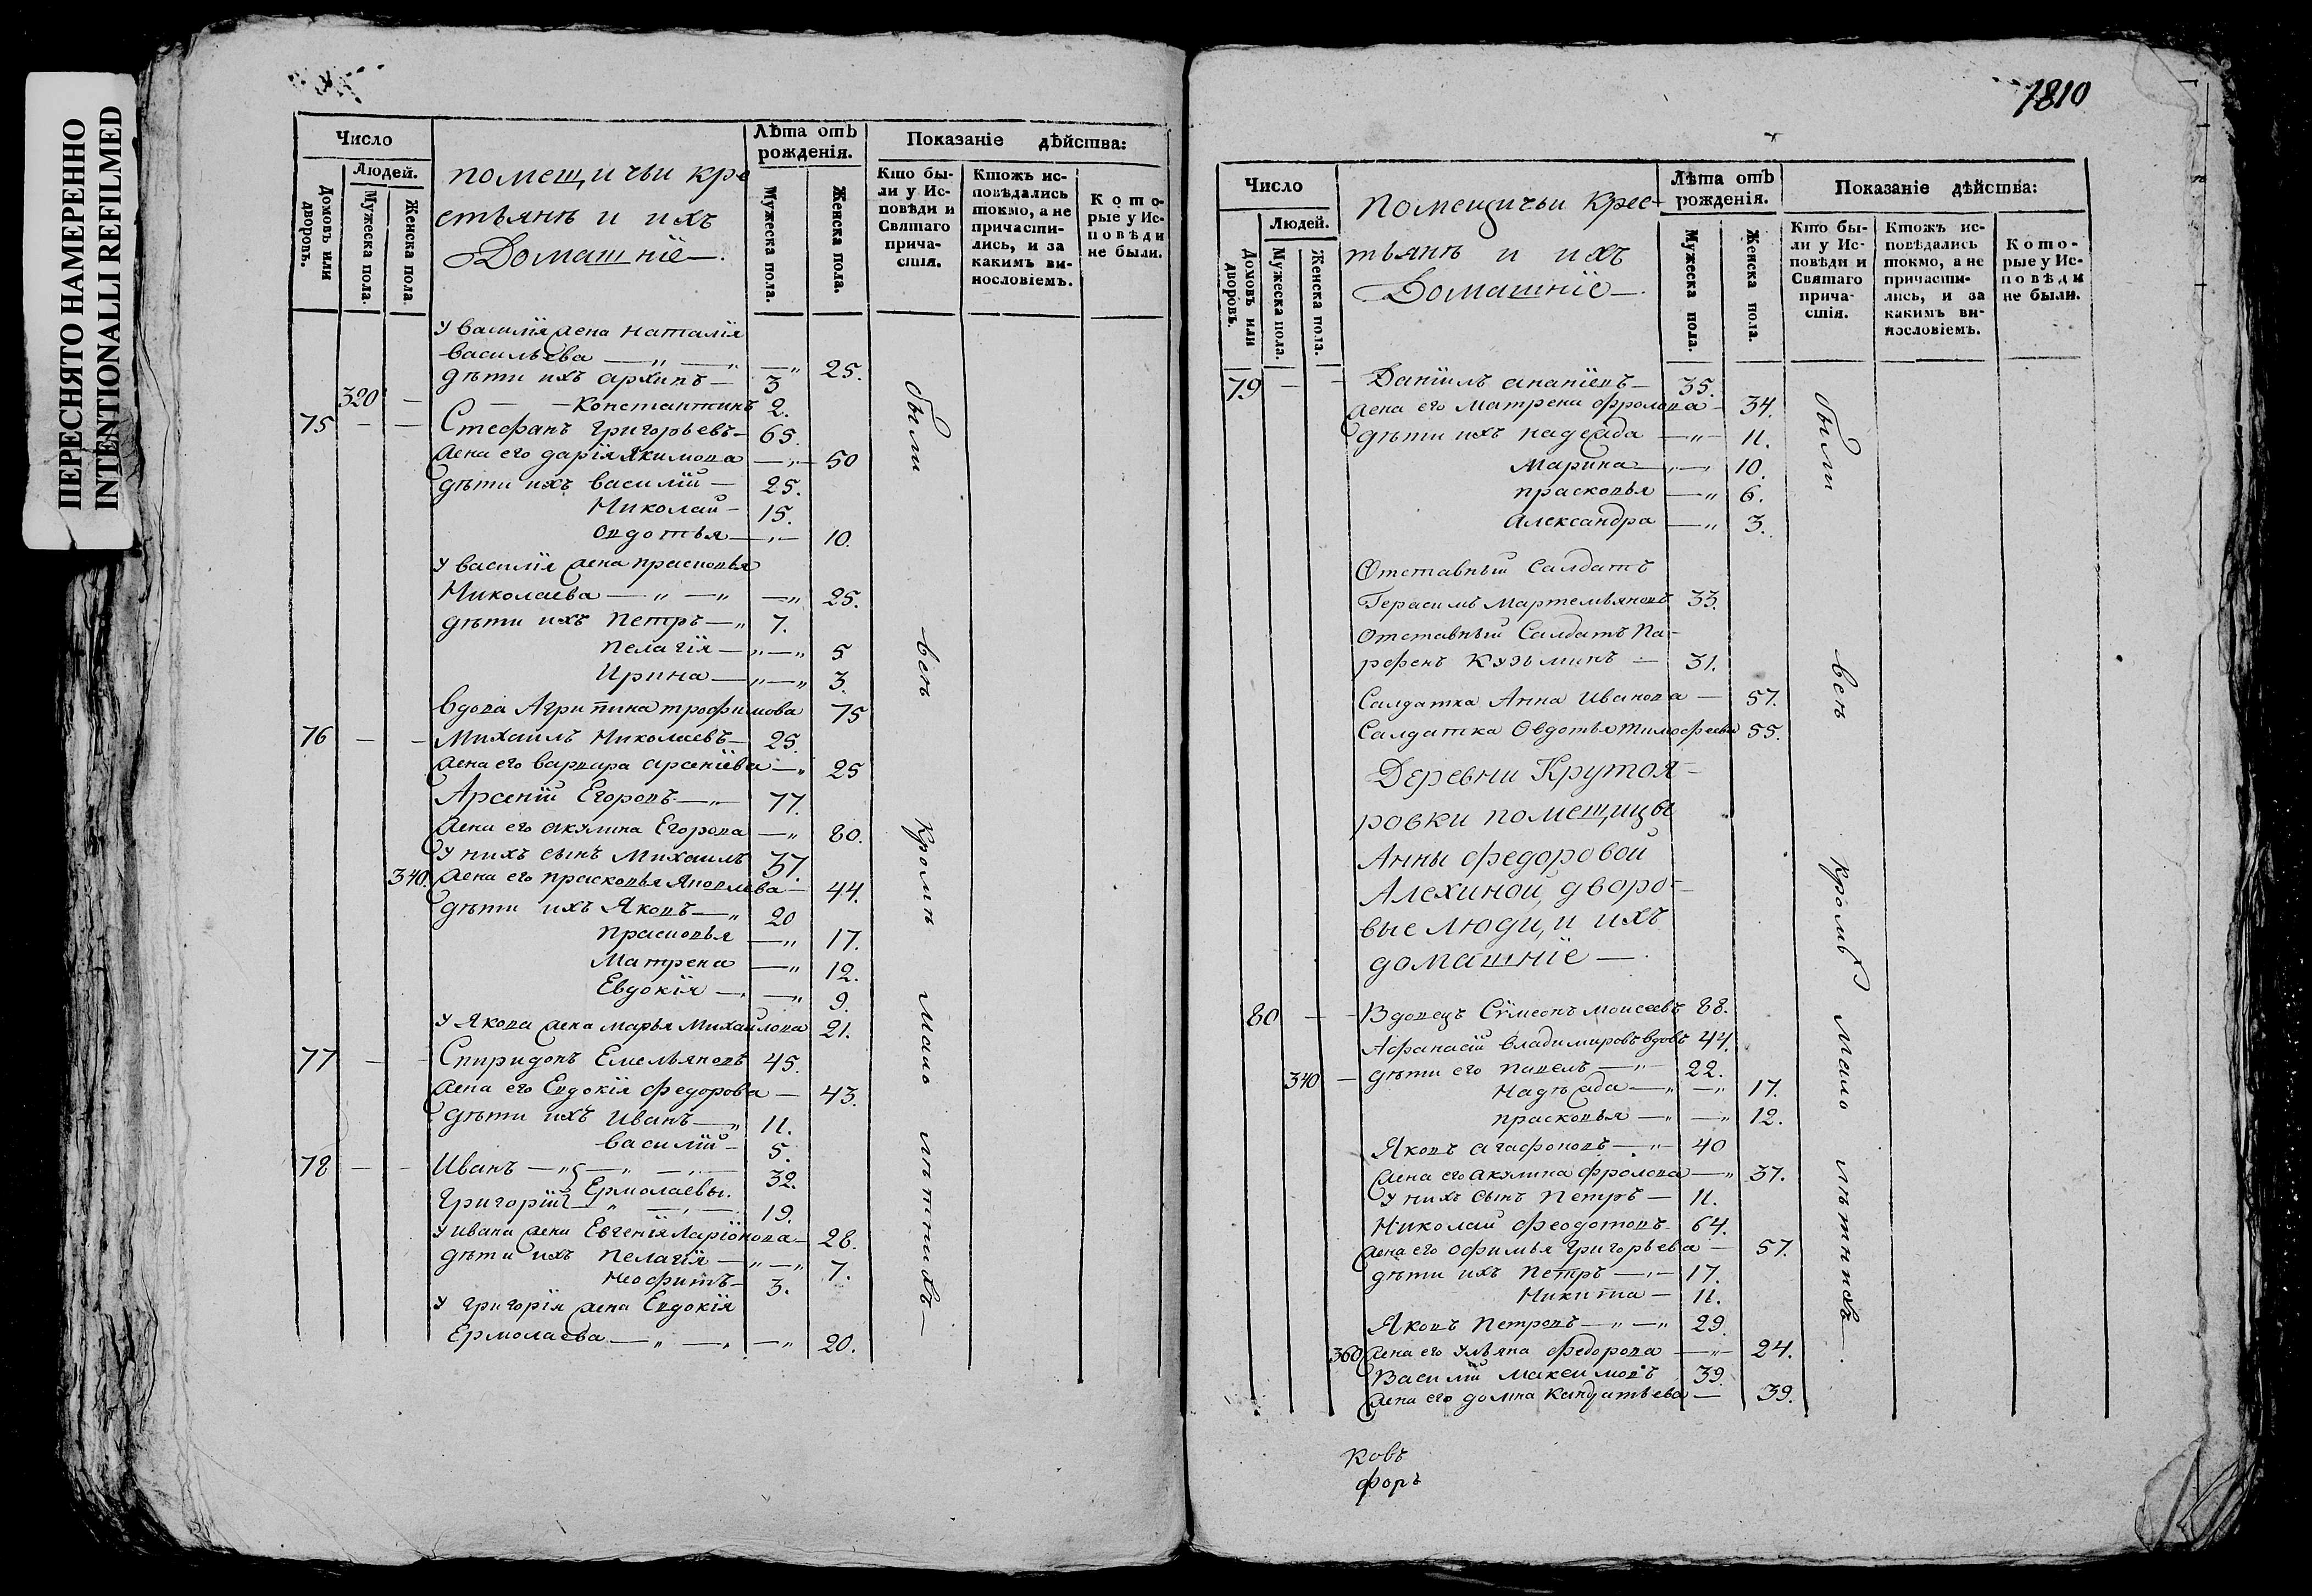 ПЕРЕСНЯТО НАМЕРЕННО
INTENTIONALLI REFILMED
Число
Людей.
Домовъ или дворовъ.
Мужеска пола.
Женска пола.
помещичьи кре
стьянѣ и ихъ
Домашніе.
Лѣта отъ рожденія.
Мужеска пола.
Женска пола.
Показаніе дѣйства:
Кто бы-
ли у Ис-
повѣди и
Святаго
прича-
стія.
Ктожъ ис-
повѣдались
токмо, а не
причасти-
лись, и за
какимъ ви-
нословіемъ.
Кото-
рые у Ис-
повѣди
не были.
У василія жена Наталія
васильева — 25.
дѣти ихъ архипъ — 3
320 — Константинъ 2.
75 — — Стефанъ Григорьевъ — 65.
жена его дарія Якимова — 50
дѣти ихъ василій — 25.
Николай — 15.
Овдотья — 10.
У василія жена прасковья
Николаева — 25.
дѣти ихъ Петръ — 7.
Пелагія — 5
Ирина — 3.
вдова Агрипина трофимова 75
76 — — Михаилъ Николаевъ — 25.
жена его варвара арсеніева — 25
Арсеній Егоровъ — 77.
жена его акулина Егорова — 80.
У нихъ сынъ Михаилъ 37.
340. жена его прасковья Яковлева — 44.
дѣти ихъ Яковъ — 20
прасковья — 17.
Матрена — 12.
Евдокія — 9.
У Якова жена марья Михаилова 21.
77 — — Спиридонъ Емельяновъ 45.
жена его Евдокія федорова — 43.
дѣти ихъ Иванъ — 11.
василій — 5.
78 — — Иванъ — 32.
Ермолаевы.
Григорій — 19.
У ивана жена Евгенія Ларіонова — 28.
дѣти ихъ Пелагія — 7.
Неофитъ — 3.
У григорія жена Евдокія
Ермолаева — 20.
были всѣ Кромѣ мало лѣтнихъ —
1810
Число
Людей.
Домовъ или дворовъ.
Мужеска пола.
Женска пола.
Помещичьи Крес-
тьянѣ и ихъ
Домашніе —
Лѣта отъ рожденія.
Мужеска пола.
Женска пола.
Показаніе дѣйства:
Кто бы-
ли у Ис-
повѣди и
Святаго
прича-
стія.
Ктожъ ис-
повѣдались
токмо, а не
причасти-
лись, и за
какимъ ви-
нословіемъ.
Кото-
рые у Ис-
повѣди
не были.
79 — — Даніилъ ананіевъ — 35.
жена его Матрена фролова — 34.
дѣти ихъ надежда — 11.
Марина — 10.
прасковья — 6.
Александра — 3.
Отставный Салдатъ
Герасимъ Мартемьяновъ 33.
Отставный Салдатъ Па-
рфенъ Кузьминъ — 31.
Салдатка Анна Иванова — 57.
Салдатка Овдотья тимофеева 55.
Деревни Крутоя-
ровки помещицы
Анны федоровой
Алехиной, дворо-
вые люди, и ихъ
домашніе —
80 — — Вдовецъ Сѵмеонъ моисеевъ 88.
Афанасій владимировъ вдовъ 44.
340 — дѣти его павелъ — 22.
Надежда — 17.
прасковья — 12.
Яковъ агафоновъ — 40
жена его акулина фролова — 37.
У нихъ сынъ Петръ — 11.
Николай Феодотовъ 64.
жена его офимья григорьева — 57.
дѣти ихъ Петръ — 17.
Никита — 11.
Яковъ Петровъ — 29.
360 жена его Ульяна федорова — 24.
Василій Максимовъ 39.
жена его домна Кандатьева — 39.
были всѣ Кромѣ мало лѣтновъ —
ковъ
форъ